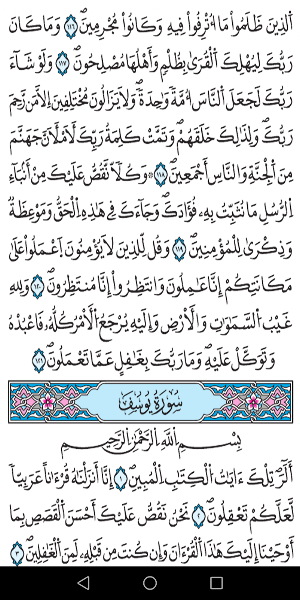 اَ۬لذِينَ ظَلَمُواْ مَآ أُتْرِفُواْ فِيهِ وَكَانُواْ مُجْرِمِينَۖ ١١٦ وَمَا كَانَ
رَبُّكَ لِيُهْلِكَ اَ۬لْقُر۪ىٰ بِظُلْمٖ وَأَهْلُهَا مُصْلِحُونَۖ ١١٧ وَلَوْ شَآءَ
رَبُّكَ لَجَعَلَ اَ۬لنَّاسَ أُمَّةٗ وَٰحِدَةٗۖ وَلَا يَزَالُونَ مُخْتَلِفِينَ إِلَّا مَن رَّحِمَ
رَبُّكَۖ وَلِذَٰلِكَ خَلَقَهُمْۖ وَتَمَّتْ كَلِمَةُ رَبِّكَ لَأَمْلَأَنَّ جَهَنَّمَ
مِنَ اَ۬لْجِنَّةِ وَالنَّاسِ أَجْمَعِينَۖ ١١٨ ۞وَكُلّاٗ نَّقُصُّ عَلَيْكَ مِنَ اَنۢبَآءِ
اِ۬لرُّسُلِ مَا نُثَبِّتُ بِهِۦ فُؤَادَكَۖ وَجَآءَكَ فِے هَٰذِهِ اِ۬لْحَقُّ وَمَوْعِظَةٞ
وَذِكْر۪ىٰ لِلْمُومِنِينَۖ ١١٩ وَقُل لِّلذِينَ لَا يُومِنُونَ اَ۪عْمَلُواْ عَلَىٰ
مَكَانَتِكُمُۥٓ إِنَّا عَٰمِلُونَ وَانتَظِرُوٓاْ إِنَّا مُنتَظِرُونَۖ ١٢٠ وَلِلهِ
غَيْبُ اُ۬لسَّمَٰوَٰتِ وَالَارْضِ وَإِلَيْهِ يَرْجِعُ اُ۬لَامْرُ كُلُّهُۥ فَاعْبُدْهُ
وَتَوَكَّلْ عَلَيْهِۖ وَمَا رَبُّكَ بِغَٰفِلٍ عَمَّا تَعْمَلُونَۖ ١٢١
سُورَةُ يُوسُفَ
بِسْمِ اِ۬للَّهِ اِ۬لرَّحْمَٰنِ اِ۬لرَّحِيمِ
أَلَٓر۪ۖ تِلْكَ ءَايَٰتُ اُ۬لْكِتَٰبِ اِ۬لْمُبِينِۖ ١ إِنَّآ أَنزَلْنَٰهُ قُرْءَٰناً عَرَبِيّاٗ
لَّعَلَّكُمْ تَعْقِلُونَۖ ٢ نَحْنُ نَقُصُّ عَلَيْكَ أَحْسَنَ اَ۬لْقَصَصِ بِمَآ
أَوْحَيْنَآ إِلَيْكَ هَٰذَا اَ۬لْقُرْءَانَ وَإِن كُنتَ مِن قَبْلِهِۦ لَمِنَ اَ۬لْغَٰفِلِينَۖ ٣